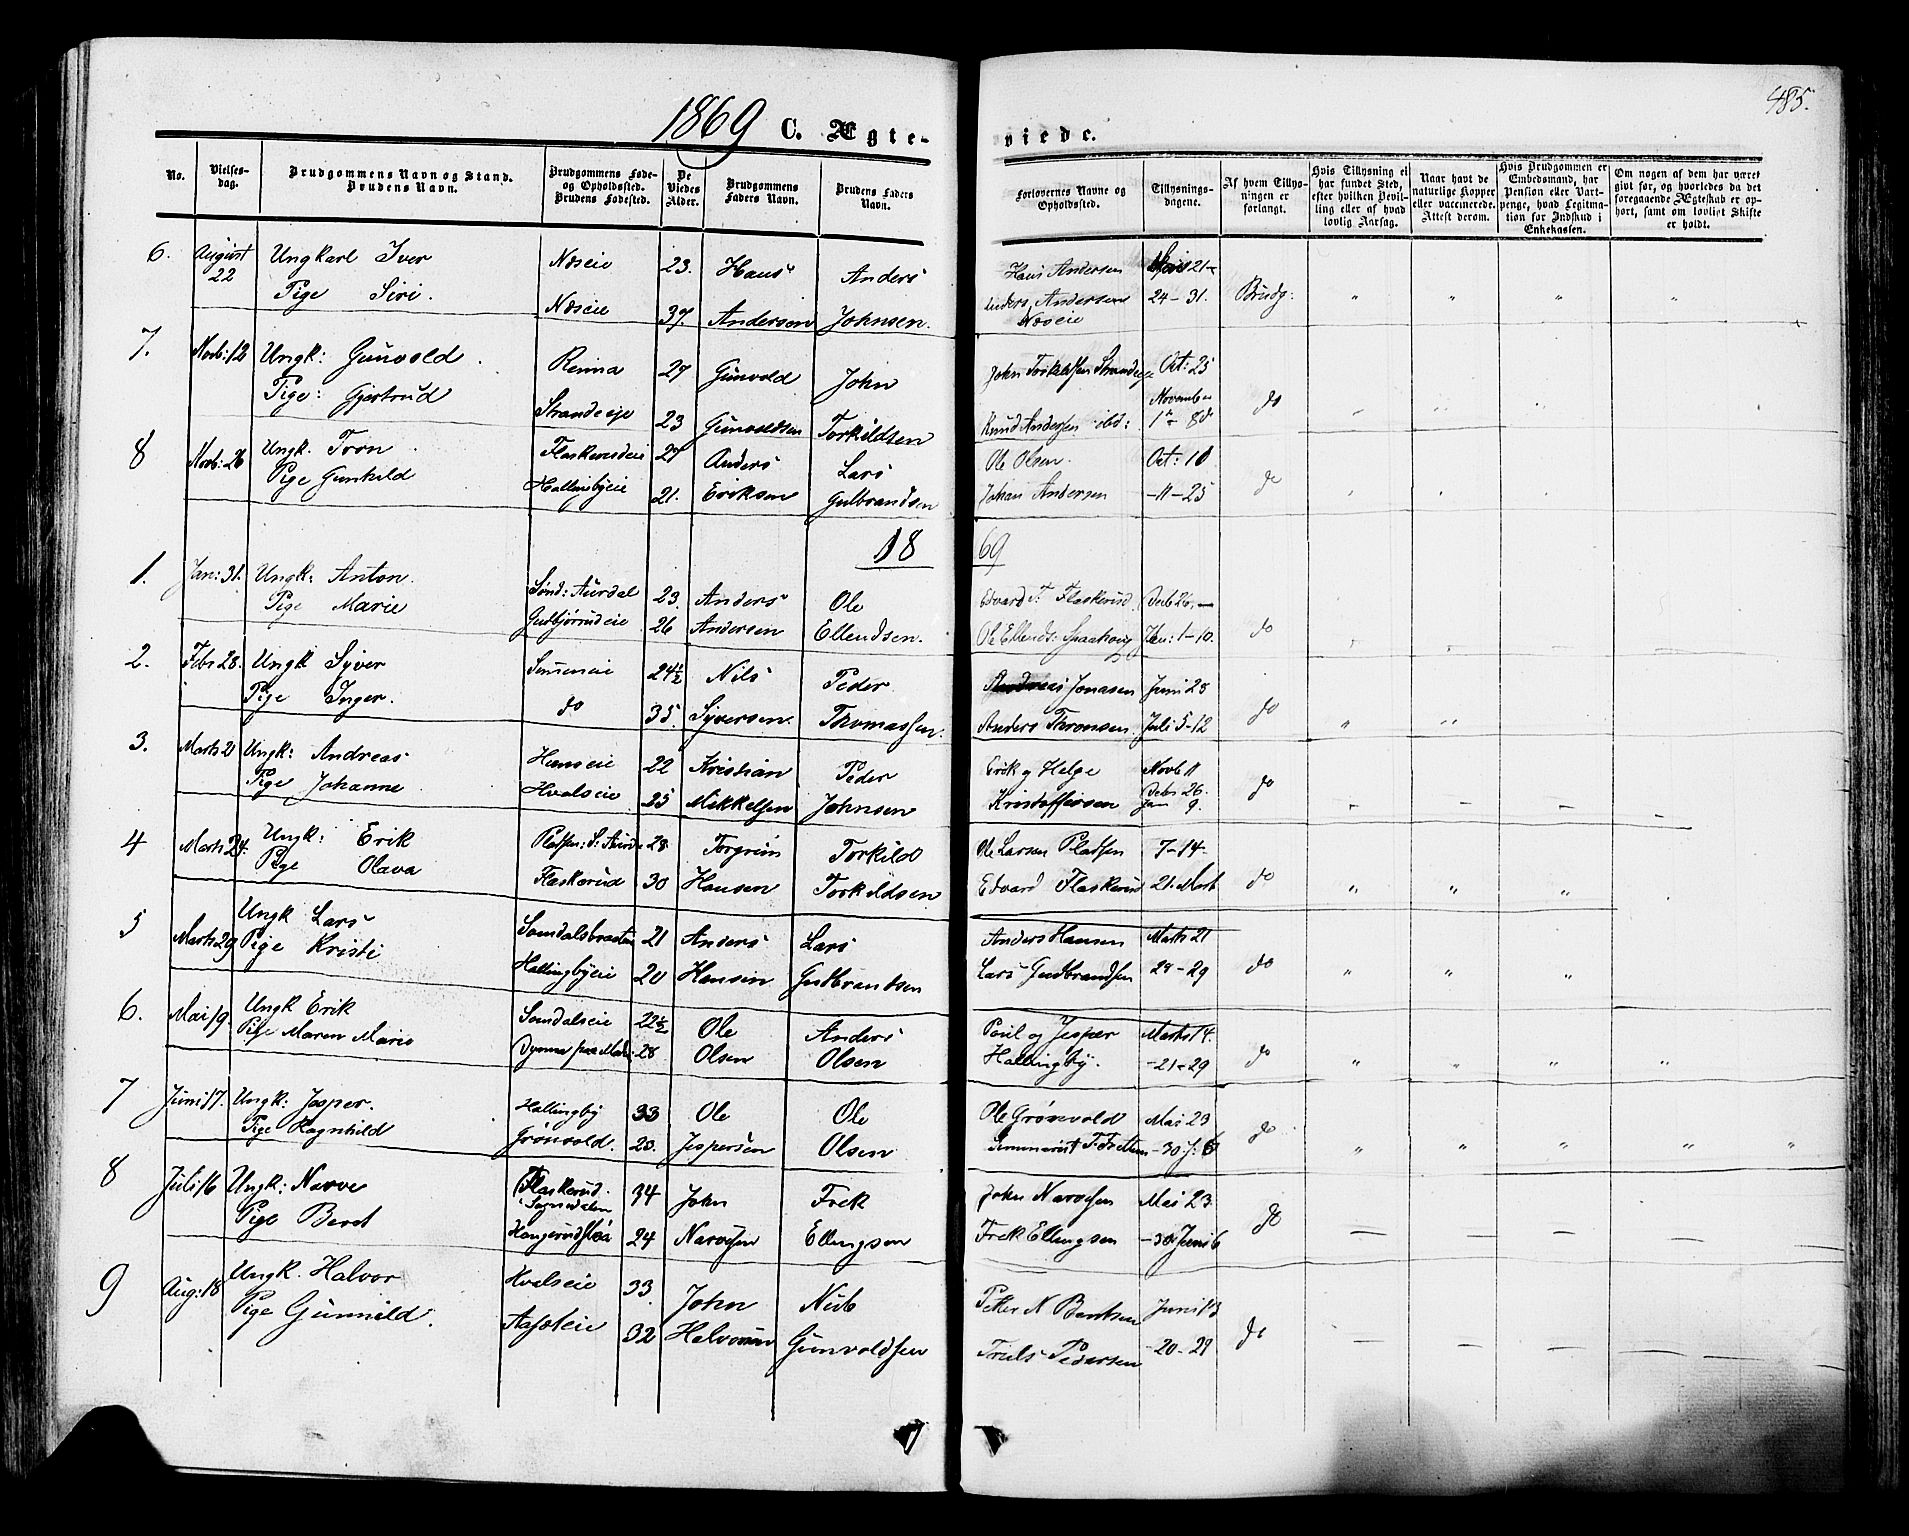 1869 C. Ægteviede.
485.
No.
Vielsesdag.
Brudgommens Navn og Stand. Brudens Navn.
Brudgommens Føde- og Opholdssted. Brudens Fødested.
De Viedes Alder.
Brudgommens Faders Navn.
Brudens Faders Navn.
Forlovernes Navne og Opholdssted.
Tillysningsdagene.
Af hvem Tillysningen er forlangt.
Hvis Tillysning ei har fundet Sted, efter hvilken Bevilling eller af hvad lovlig Aarsag.
Naar havt de naturlige Kopper eller vaccinerede. Attest derom.
Hvis Brudgommen er Embedsmand, har Pension eller Vartpenge, hvad Legitimation for Indskud i Enkekassen.
Om nogen af dem har været givt før, og hvorledes da det foregaaende Ægteskab er ophørt, samt om lovligt Skifte er holdt.
6. August 22 Ungkarl Iver Næseie 23. Hans Anders Hans Andersen 21-
Pige Siri. Næseie 37. Andersen Johnsen. Anders Andersen Næseie 24-31. Brudg: " " " "
7. Novb: 12 Ungk: Gunvold Renna 27 Gunvold John John Torkildsen Oct: 25
Pige: Gjertrud Strandeeje 23 Gunvoldsen Torkildsen Knud Andersen ibd: November 1 - 8 do
8 Novb: 26 Ungk. Tron Flaskerudeie 27 Anders Lars Ole Olsen. Oct: 10
Pige Gunhild Hallingbyeie 21. Eriksen Gulbrandsen Johan Andersen -11-25 do
1869
1. Jan: 31. Ungk: Anton. Sønd: Aurdal 23. Anders Ole Edvard T. Flaskerud. Decb 26.-
Pige Marie Gudbjørrudeie 26 Andersen Ellendsen. Ole Ellends: Jan: 1-10. do
2. Febr 28. Ungk Syver 24½ Nils Peder Andreas Jonasen Juni 28
Pige Inger. do 35. Syversen. Thomassen. Anders Thronsen. Juli 5-12 do " "
3. Marts 21 Ungk: Andreas 22 Kristian Peder Erik og Helge Novb 11
Pige Johanne Hvalseie 35 Mikkelsen Johnsen Kristoffersen Decbr 26. Jan 9. do - - -
4 Marts 24. Ungk: Erik Pladsen: S: Aurd: 28 Torgrim Torkild Ole Larsen Pladsen 7-14-
Pige Olava Flaskerud 30 Hansen Torkildsen Edvard Flaskerud 21. Mart do " " "
5 Marts 29 Ungk Lars Somdalsbraaten 21 Anders Lars Anders Hansen Marts 21
Pige Kristi Hallingbyeie 20 Hansen Gudbrandsen Lars Gudbrandsen 28-29 do " " "
6. Mai 19. Ungk Erik Somdalseie 22½ Ole Anders Poul og Jesper Marts 14.
Pige Maren Marie 28 Olsen Olsen Hallingby. -21-29 do " " " "
7 Juni 17. Ungk: Jesper. Hallingby 33 Ole Ole Ole Grønvold Mai 23
Pige Ragnhild Grønvold. 20. Jespersen Olsen -30 J: 6 do " " " " "
8 Juli 16 Ungk: Narve Flaskerud Sognedalen 34 John Frek John Narvesen Mai 23.
Pige Berit 24 Narvesen Ellingsen Frek Ellingsen -30 Juni 6 do - - - -
9 Aug: 18 Ungk. Halvor Hvalseie 33. John Peter N Bentsen Juni 13
Pige Gunnild. 32 Halvorsen Gunvoldsen Truls Pedersen -20-29 do - - - -